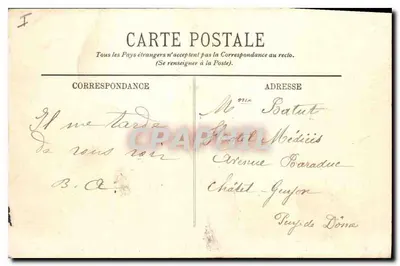 I
CARTE POSTALE
Tous les Pays étrangers n'acceptent pas la Correspondance au recto.
(Se renseigner à la Poste).
CORRESPONDANCE
Il me tarde
de vous voir
B. A.
ADRESSE
Mme Batut
Hotel Médicis
Avenue Baraduc
Châtel-Guyon
Puy-de Dôme